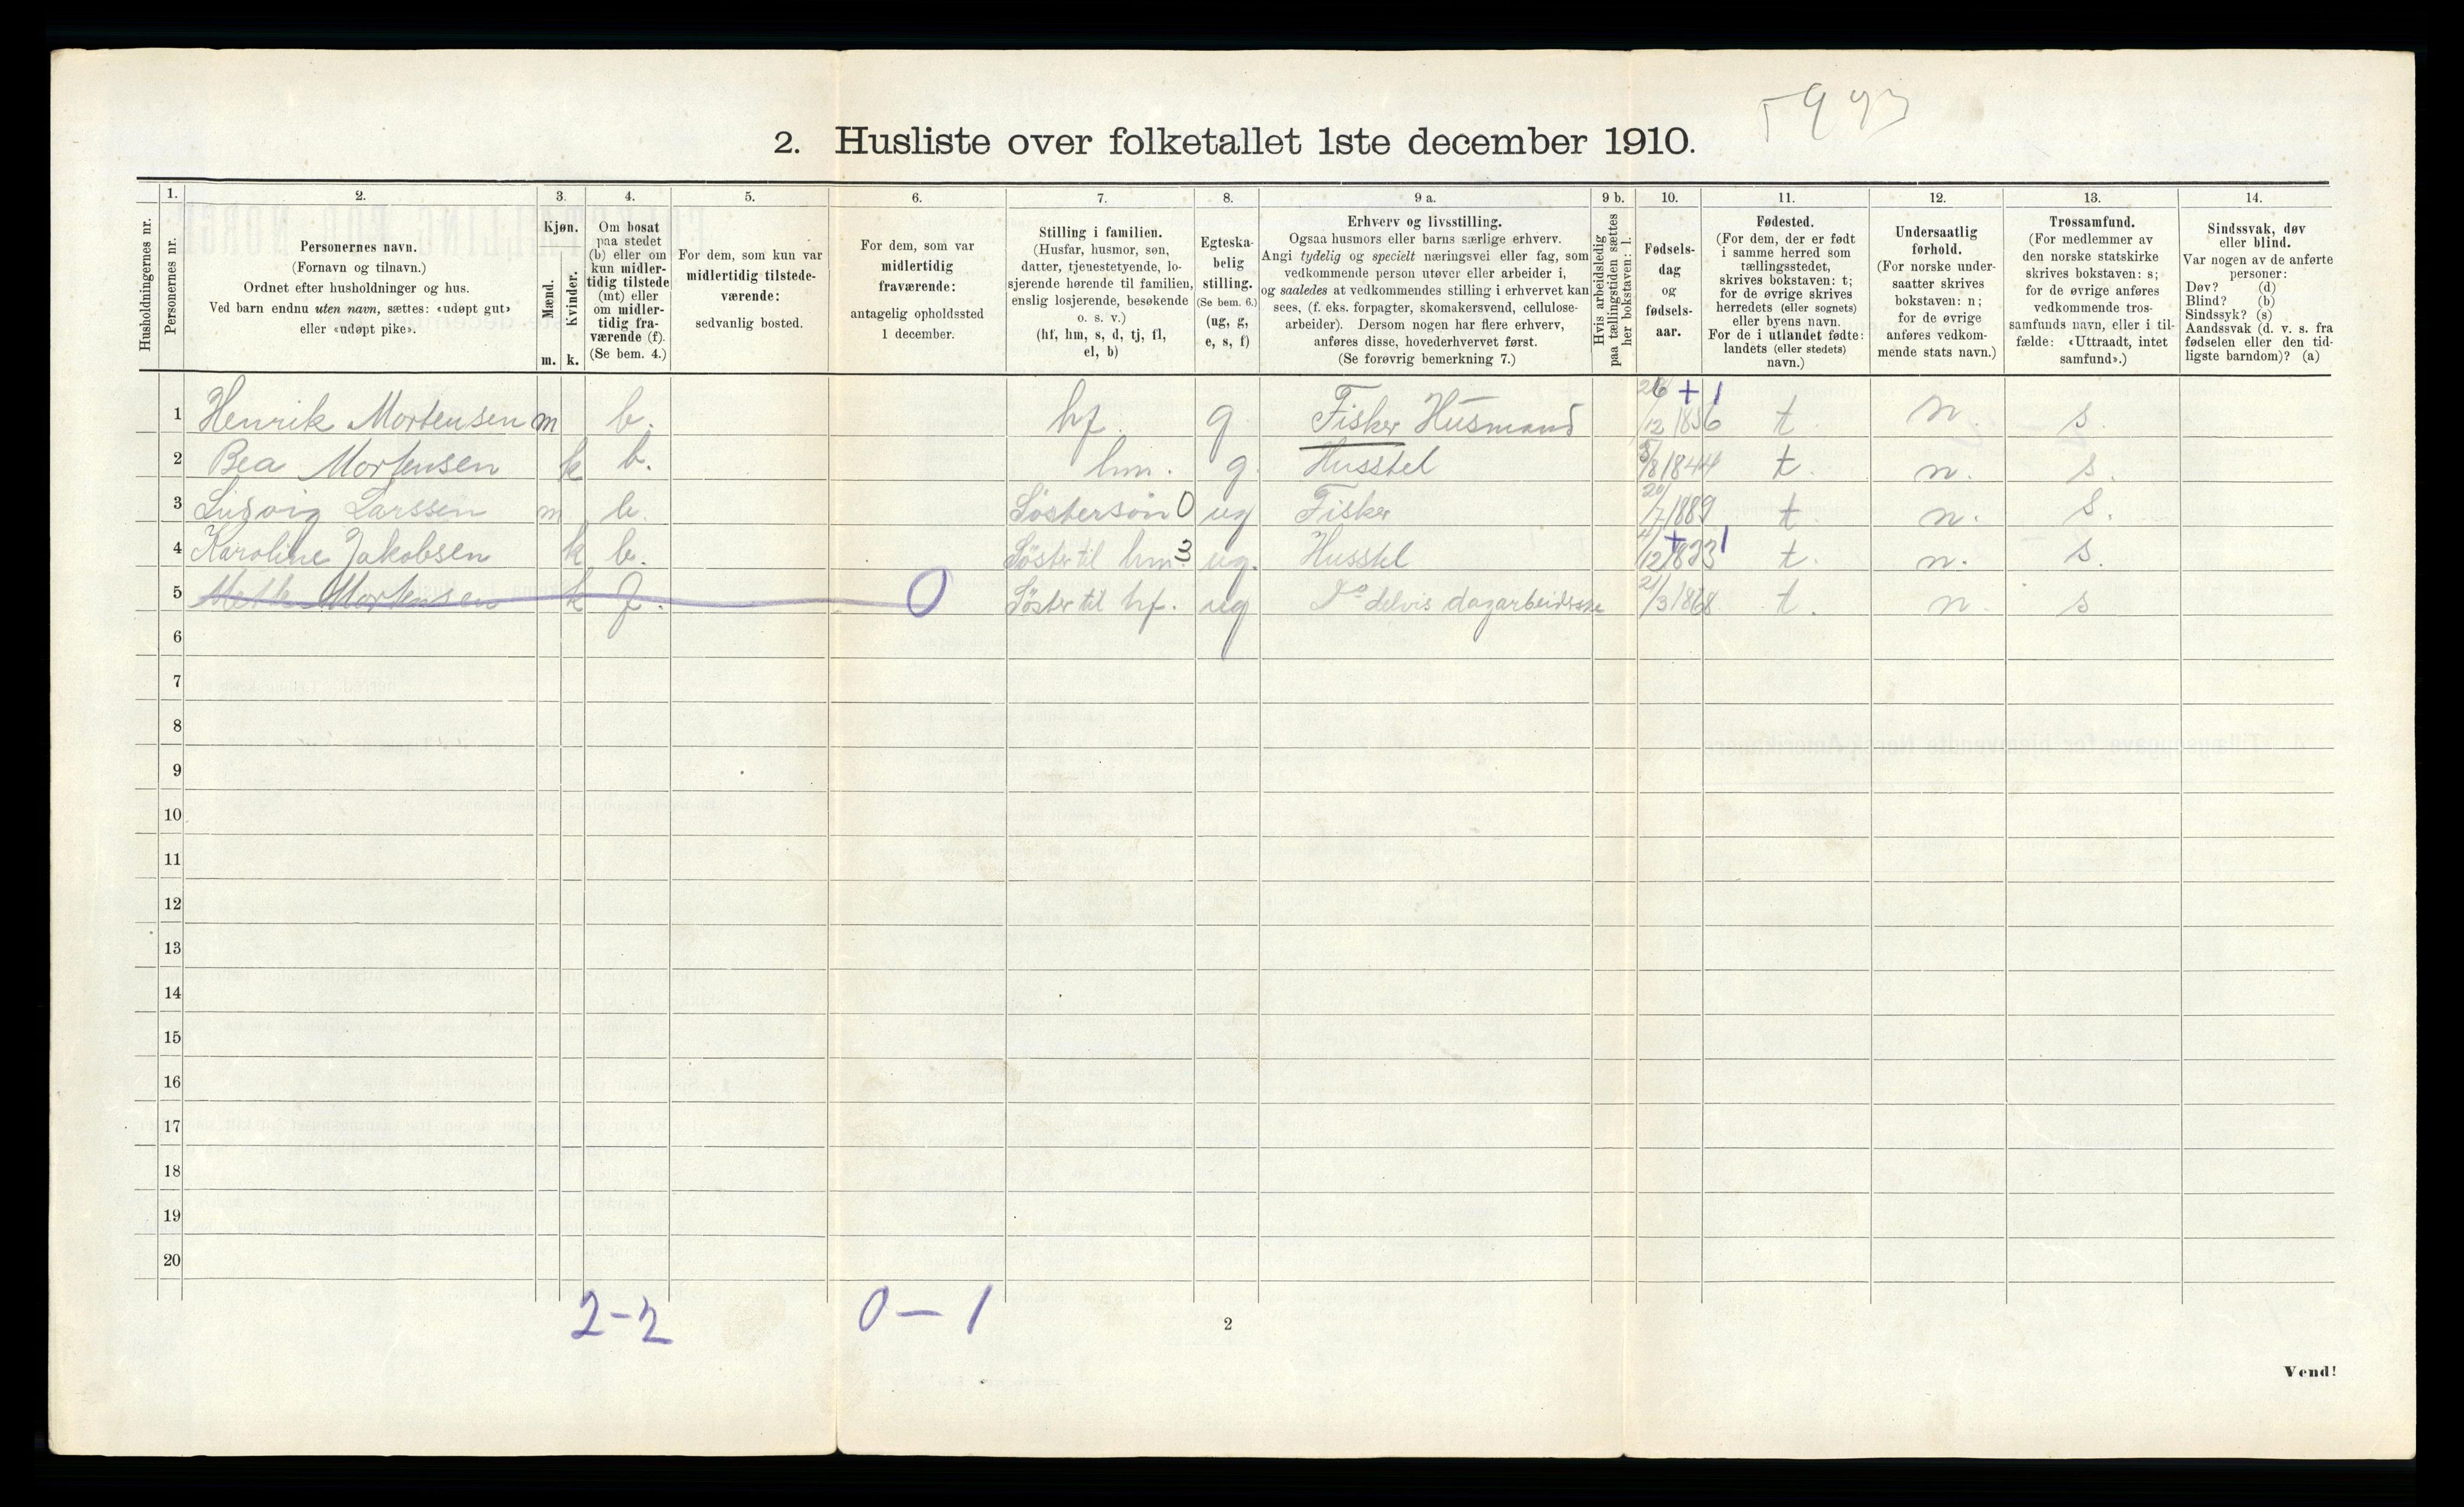 5993
2. Husliste over folketallet 1ste december 1910.
Husholdningernes nr.
1.
Personernes nr.
2.
Personernes navn.
(Fornavn og tilnavn.)
Ordnet efter husholdninger og hus.
Ved barn endnu uten navn, sættes: «udøpt gut»
eller «udøpt pike».
3.
Kjøn.
Mænd.
m.
Kvinder.
k.
4.
Om bosat
paa stedet
(b) eller om
kun midler-
tidig tilstede
(mt) eller
om midler-
tidig fra-
værende (f).
(Se bem. 4.)
5.
For dem, som kun var
midlertidig tilstede-
værende:
sedvanlig bosted.
6.
For dem, som var
midlertidig
fraværende:
antagelig opholdssted
1 december.
7.
Stilling i familien.
(Husfar, husmor, søn,
datter, tjenestetyende, lo-
sjerende hørende til familien,
enslig losjerende, besøkende
o. s. v.)
(hf, hm, s, d, tj, fl,
el, b)
8.
Egteska-
belig
stilling.
(Se bem. 6.)
(ug, g,
e, s, f)
9 a.
Erhverv og livsstilling.
Ogsaa husmors eller barns særlige erhverv.
Angi tydelig og specielt næringsvei eller fag, som
vedkommende person utøver eller arbeider i,
og saaledes at vedkommendes stilling i erhvervet kan
sees, (f. eks. forpagter, skomakersvend, cellulose-
arbeider). Dersom nogen har flere erhverv,
anføres disse, hovederhvervet først.
(Se forøvrig bemerkning 7.)
9 b.
Hvis arbeidsledig
paa tællingstiden sættes
her bokstaven: l.
10.
Fødsels-
dag
og
fødsels-
aar.
11.
Fødested.
(For dem, der er født
i samme herred som
tællingsstedet,
skrives bokstaven: t;
for de øvrige skrives
herredets (eller sognets)
eller byens navn.
For de i utlandet fødte:
landets (eller stedets)
navn.)
12.
Undersaatlig
forhold.
(For norske under-
saatter skrives
bokstaven: n;
for de øvrige
anføres vedkom-
mende stats navn.)
13.
Trossamfund.
(For medlemmer av
den norske statskirke
skrives bokstaven: s;
for de øvrige anføres
vedkommende tros-
samfunds navn, eller i til-
fælde: «Uttraadt, intet
samfund».)
14.
Sindssvak, døv
eller blind.
Var nogen av de anførte
personer:
Døv? (d)
Blind? (b)
Sindssyk? (s)
Aandssvak (d. v. s. fra
fødselen eller den tid-
ligste barndom)? (a)
1 Henrik Mortensen m b. hf. g Fisker Husmand 26/12 1856 + 1 t n. s.
2 Bea Mortensen k b. hm. g. Husstel 3/8 1844 t. n. s.
3 Ludvig Larssen m b. Søstersøn 0 ug Fisker 20/7 1889 t n. s.
4 Karoline Jakobsen k b. Søster til hm. 3 ug. Husstel 4/12 1833 + 1 t. n. s.
5 Mortensen k f. 0 Søster til hf. ug Do delvis dagarbeiderske 21/3 1868 t. n. s
6
7
8
9
10
11
12
13
14
15
16
17
18
19
20
2-2 0-1
2
Vend!